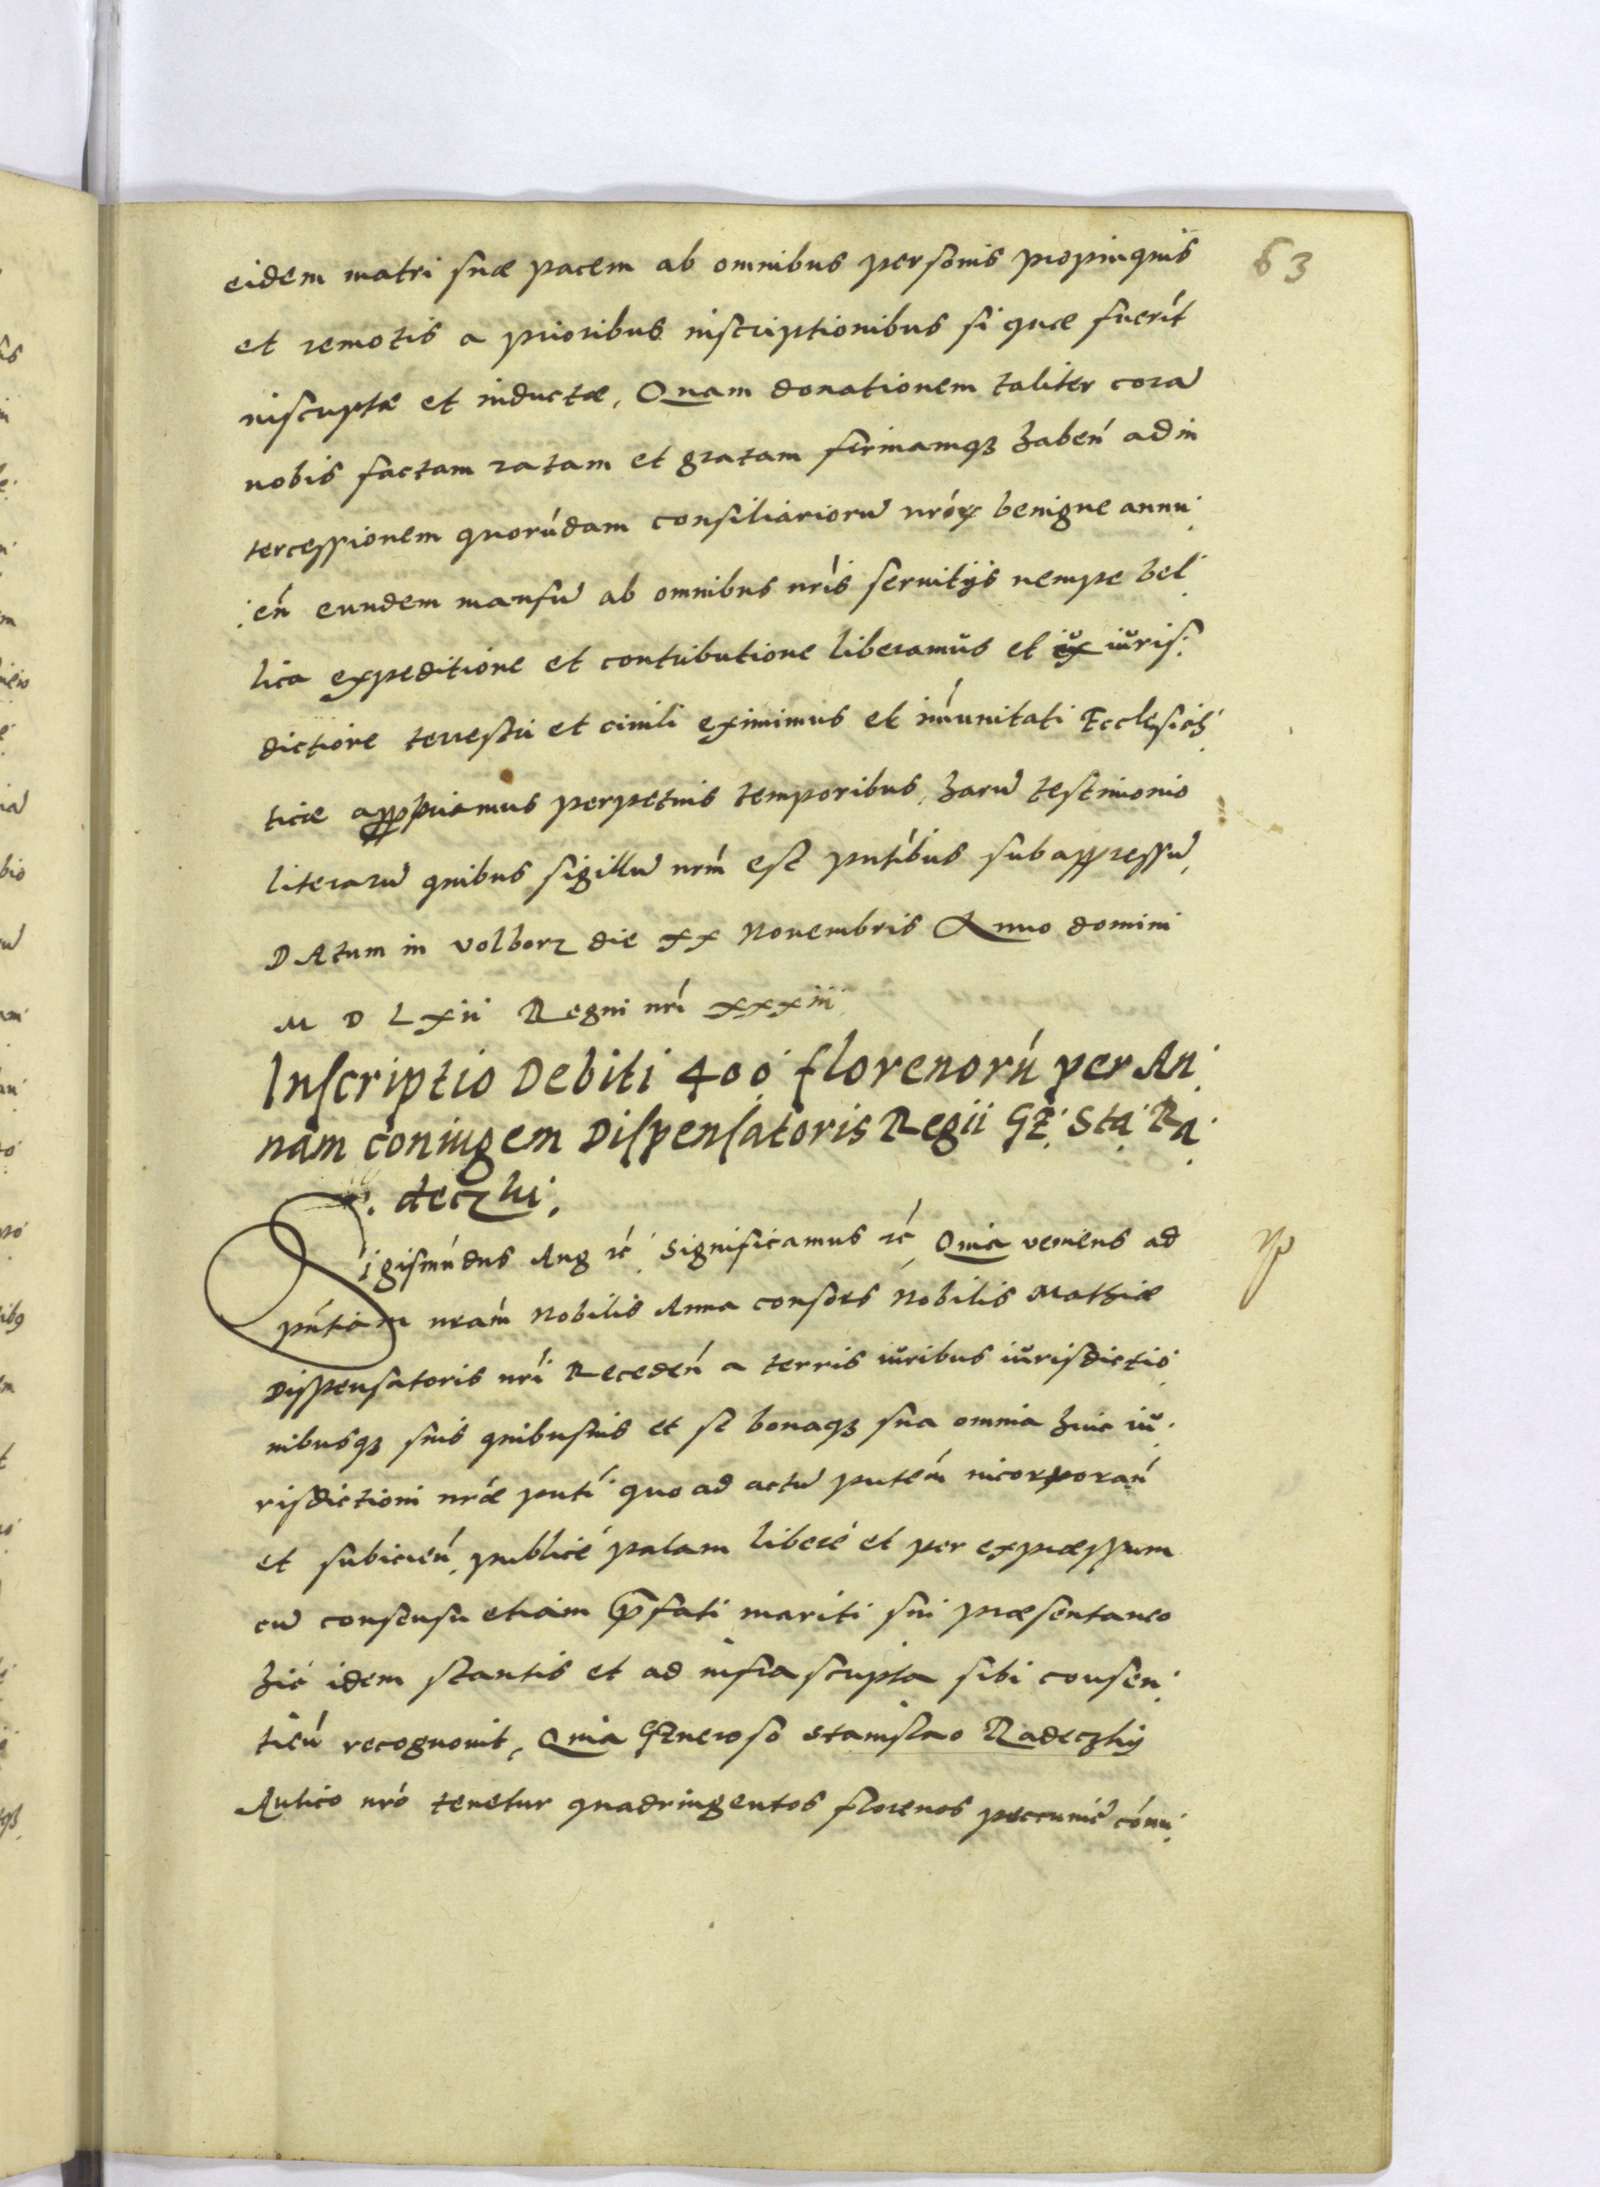 63
eidem matri suæ pacem ab omnibus personis propinquis
et remotis a prioribus inscriptionibus si quæ fuerīt
inscriptæ et inductæ, Quam donationem taliter corā
nobis factam ratam et gratam firmamqȝ habeń ad in
tercessionem quorúdam consiliariorū nróꝝ benigne annu
eń eundem mansū ab omnibus nrís seruitijs nempe bel
lica expeditione et contributione liberamus et iuris
dictione terrestri et ciuili eximimus et imúnitati Ecclesias
ticæ appropriamus perpetuis temporibus, harū testimonio
literarū quibus sigillū nrm̃ est pntibus subappressū,
DAtum in volborz die xx Nouembris Anno domini
M D Lxii Regni nrí xxxiii
Inscriptio Debiti 400 florenorú per An
nam coniugem Dispensatoris Regii Gē: Sta: Ra
deczki.
Sigismúdus Aug ꝛc̃ Significamus ꝛc̃ Quia veniens ad
pńtiam nram̃ Nobilis Anna consors Nobilis Mathiæ
Dispensatoris nrí Recedeń a terris iuribus iurisdictio
nibusqȝ suis quibusuis et se bonaqȝ sua omnia huic iu
risdictioni nrǽ pntí quo ad actū pntem̃ incorporań
et subicień, publicé palam liberé et per expræssum
cū consensu etiam p̃fati mariti sui præsentaneo
hic idem stantis et ad infra scripta sibi consen
tień recognouit, Quia Generoso Stanislao Radeczkij
Aulico nró tenetur quadringentos florenos peccunię cómu